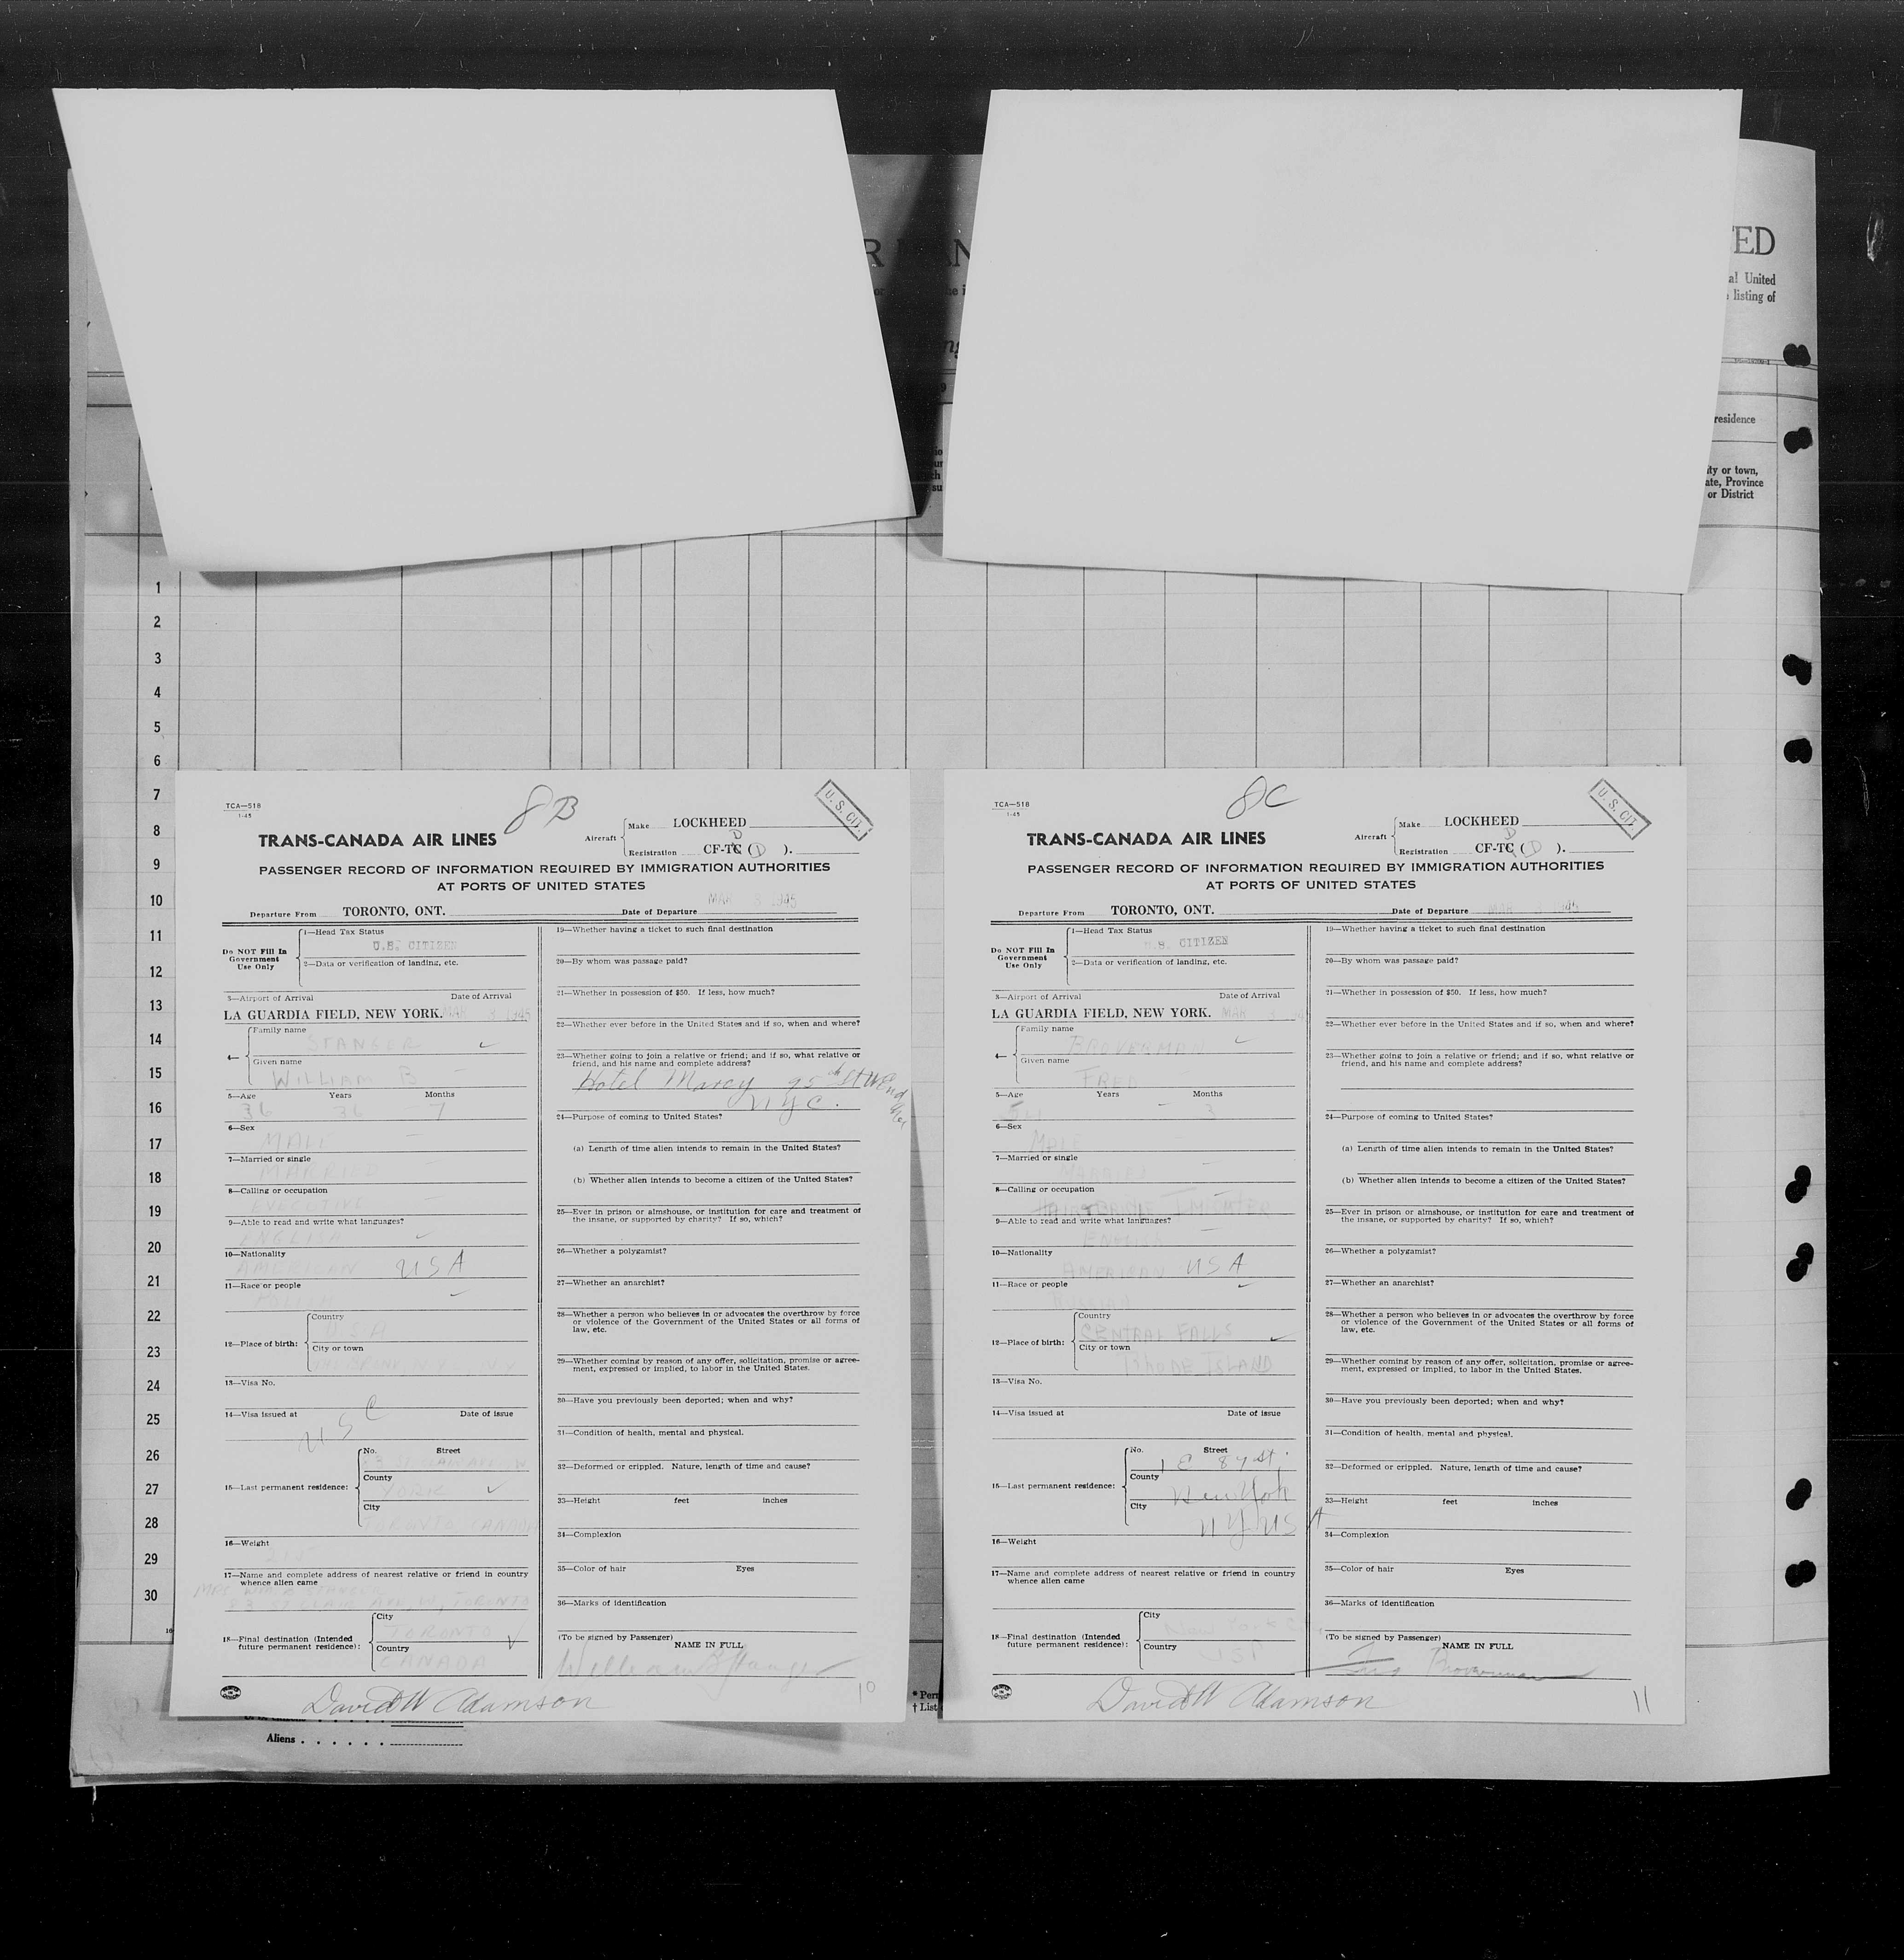 R
AN
ED
al United
listing of
residence
ity or town,
ate, Province
or District
1
2
3
4
5
6
7
8
9
10
11
12
13
14
15
16
17
18
19
20
21
22
23
24
25
26
27
28
29
30
TCA—518
1-45
8B
U. S. CIT.
TRANS-CANADA AIR LINES
Aircraft
Make LOCKHEED
D
Registration CF-TC ( D ).
PASSENGER RECORD OF INFORMATION REQUIRED BY IMMIGRATION AUTHORITIES
AT PORTS OF UNITED STATES
Departure From TORONTO, ONT. Date of Departure MAR 3 1945
Do NOT Fill In
Government
Use Only
1—Head Tax Status
U.S. CITIZEN
2—Data or verification of landing, etc.
3—Airport of Arrival Date of Arrival
LA GUARDIA FIELD, NEW YORK. MAR 3 1945
4—
Family name
STANGER
Given name
WILLIAM B
5—Age Years Months
36 36 7
6—Sex
MALE
7—Married or single
MARRIED
8—Calling or occupation
EXECUTIVE
9—Able to read and write what languages?
ENGLISH
10—Nationality
AMERICAN USA
11—Race or people
12—Place of birth:
Country
USA
City or town
N Y
13—Visa No.
14—Visa issued at Date of issue
U S C
15—Last permanent residence:
No. Street
83 ST CLAIR AVE W
County
YORK
City
TORONTO CANADA
16—Weight
17—Name and complete address of nearest relative or friend in country
whence alien came
MRS WM B STANGER
83 ST CLAIR AVE, W, TORONTO
18—Final destination (Intended
future permanent residence):
City
TORONTO
Country
CANADA
19—Whether having a ticket to such final destination
20—By whom was passage paid?
21—Whether in possession of $50. If less, how much?
22—Whether ever before in the United States and if so, when and where?
23—Whether going to join a relative or friend; and if so, what relative or
friend, and his name and complete address?
Hotel Marcy 95th St W End Ave
NYC.
24—Purpose of coming to United States?
(a) Length of time alien intends to remain in the United States?
(b) Whether alien intends to become a citizen of the United States?
25—Ever in prison or almshouse, or institution for care and treatment of
the insane, or supported by charity? If so, which?
26—Whether a polygamist?
27—Whether an anarchist?
28—Whether a person who believes in or advocates the overthrow by force
or violence of the Government of the United States or all forms of
law, etc.
29—Whether coming by reason of any offer, solicitation, promise or agree-
ment, expressed or implied, to labor in the United States.
30—Have you previously been deported; when and why?
31—Condition of health, mental and physical.
32—Deformed or crippled. Nature, length of time and cause?
33—Height feet inches
34—Complexion
35—Color of hair Eyes
36—Marks of identification
(To be signed by Passenger)
NAME IN FULL
William B Stanger
David W Adamson
10
TCA—518
1-45
8C
U. S. CIT.
TRANS-CANADA AIR LINES
Aircraft
Make LOCKHEED
D
Registration CF-TC ( D ).
PASSENGER RECORD OF INFORMATION REQUIRED BY IMMIGRATION AUTHORITIES
AT PORTS OF UNITED STATES
Departure From TORONTO, ONT. Date of Departure MAR 3 1945
Do NOT Fill In
Government
Use Only
1—Head Tax Status
U.S. CITIZEN
2—Data or verification of landing, etc.
3—Airport of Arrival Date of Arrival
LA GUARDIA FIELD, NEW YORK. MAR 3
4—
Family name
BROVERMAN
Given name
FRED
5—Age Years Months
3
6—Sex
MALE
7—Married or single
MARRIED
8—Calling or occupation
IMPORTER
9—Able to read and write what languages?
ENGLISH
10—Nationality
AMERICAN USA
11—Race or people
RUSSIAN
12—Place of birth:
Country
CENTRAL FALLS
City or town
RHODE ISLAND
13—Visa No.
14—Visa issued at Date of issue
15—Last permanent residence:
No. Street
1 E 87 St.
County
New York
City
N Y USA
16—Weight
17—Name and complete address of nearest relative or friend in country
whence alien came
18—Final destination (Intended
future permanent residence):
City
New York
Country
19—Whether having a ticket to such final destination
20—By whom was passage paid?
21—Whether in possession of $50. If less, how much?
22—Whether ever before in the United States and if so, when and where?
23—Whether going to join a relative or friend; and if so, what relative or
friend, and his name and complete address?
24—Purpose of coming to United States?
(a) Length of time alien intends to remain in the United States?
(b) Whether alien intends to become a citizen of the United States?
25—Ever in prison or almshouse, or institution for care and treatment of
the insane, or supported by charity? If so, which?
26—Whether a polygamist?
27—Whether an anarchist?
28—Whether a person who believes in or advocates the overthrow by force
or violence of the Government of the United States or all forms of
law, etc.
29—Whether coming by reason of any offer, solicitation, promise or agree-
ment, expressed or implied, to labor in the United States.
30—Have you previously been deported; when and why?
31—Condition of health, mental and physical.
32—Deformed or crippled. Nature, length of time and cause?
33—Height feet inches
34—Complexion
35—Color of hair Eyes
36—Marks of identification
(To be signed by Passenger)
NAME IN FULL
Broverman
David W Adamson
11
* Per
† List
Aliens . . . . . .